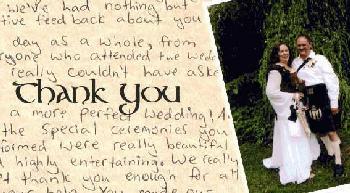 we've had nothing but
tive feedback about you
day as a whole, from
ryone who attended the wedd
really couldn't have aske
Thank You
a more perfect wedding! A
the special ceremonies you
formed were really beautiful
d highly entertaining. We really
t thank you enough for all
your help. You made our